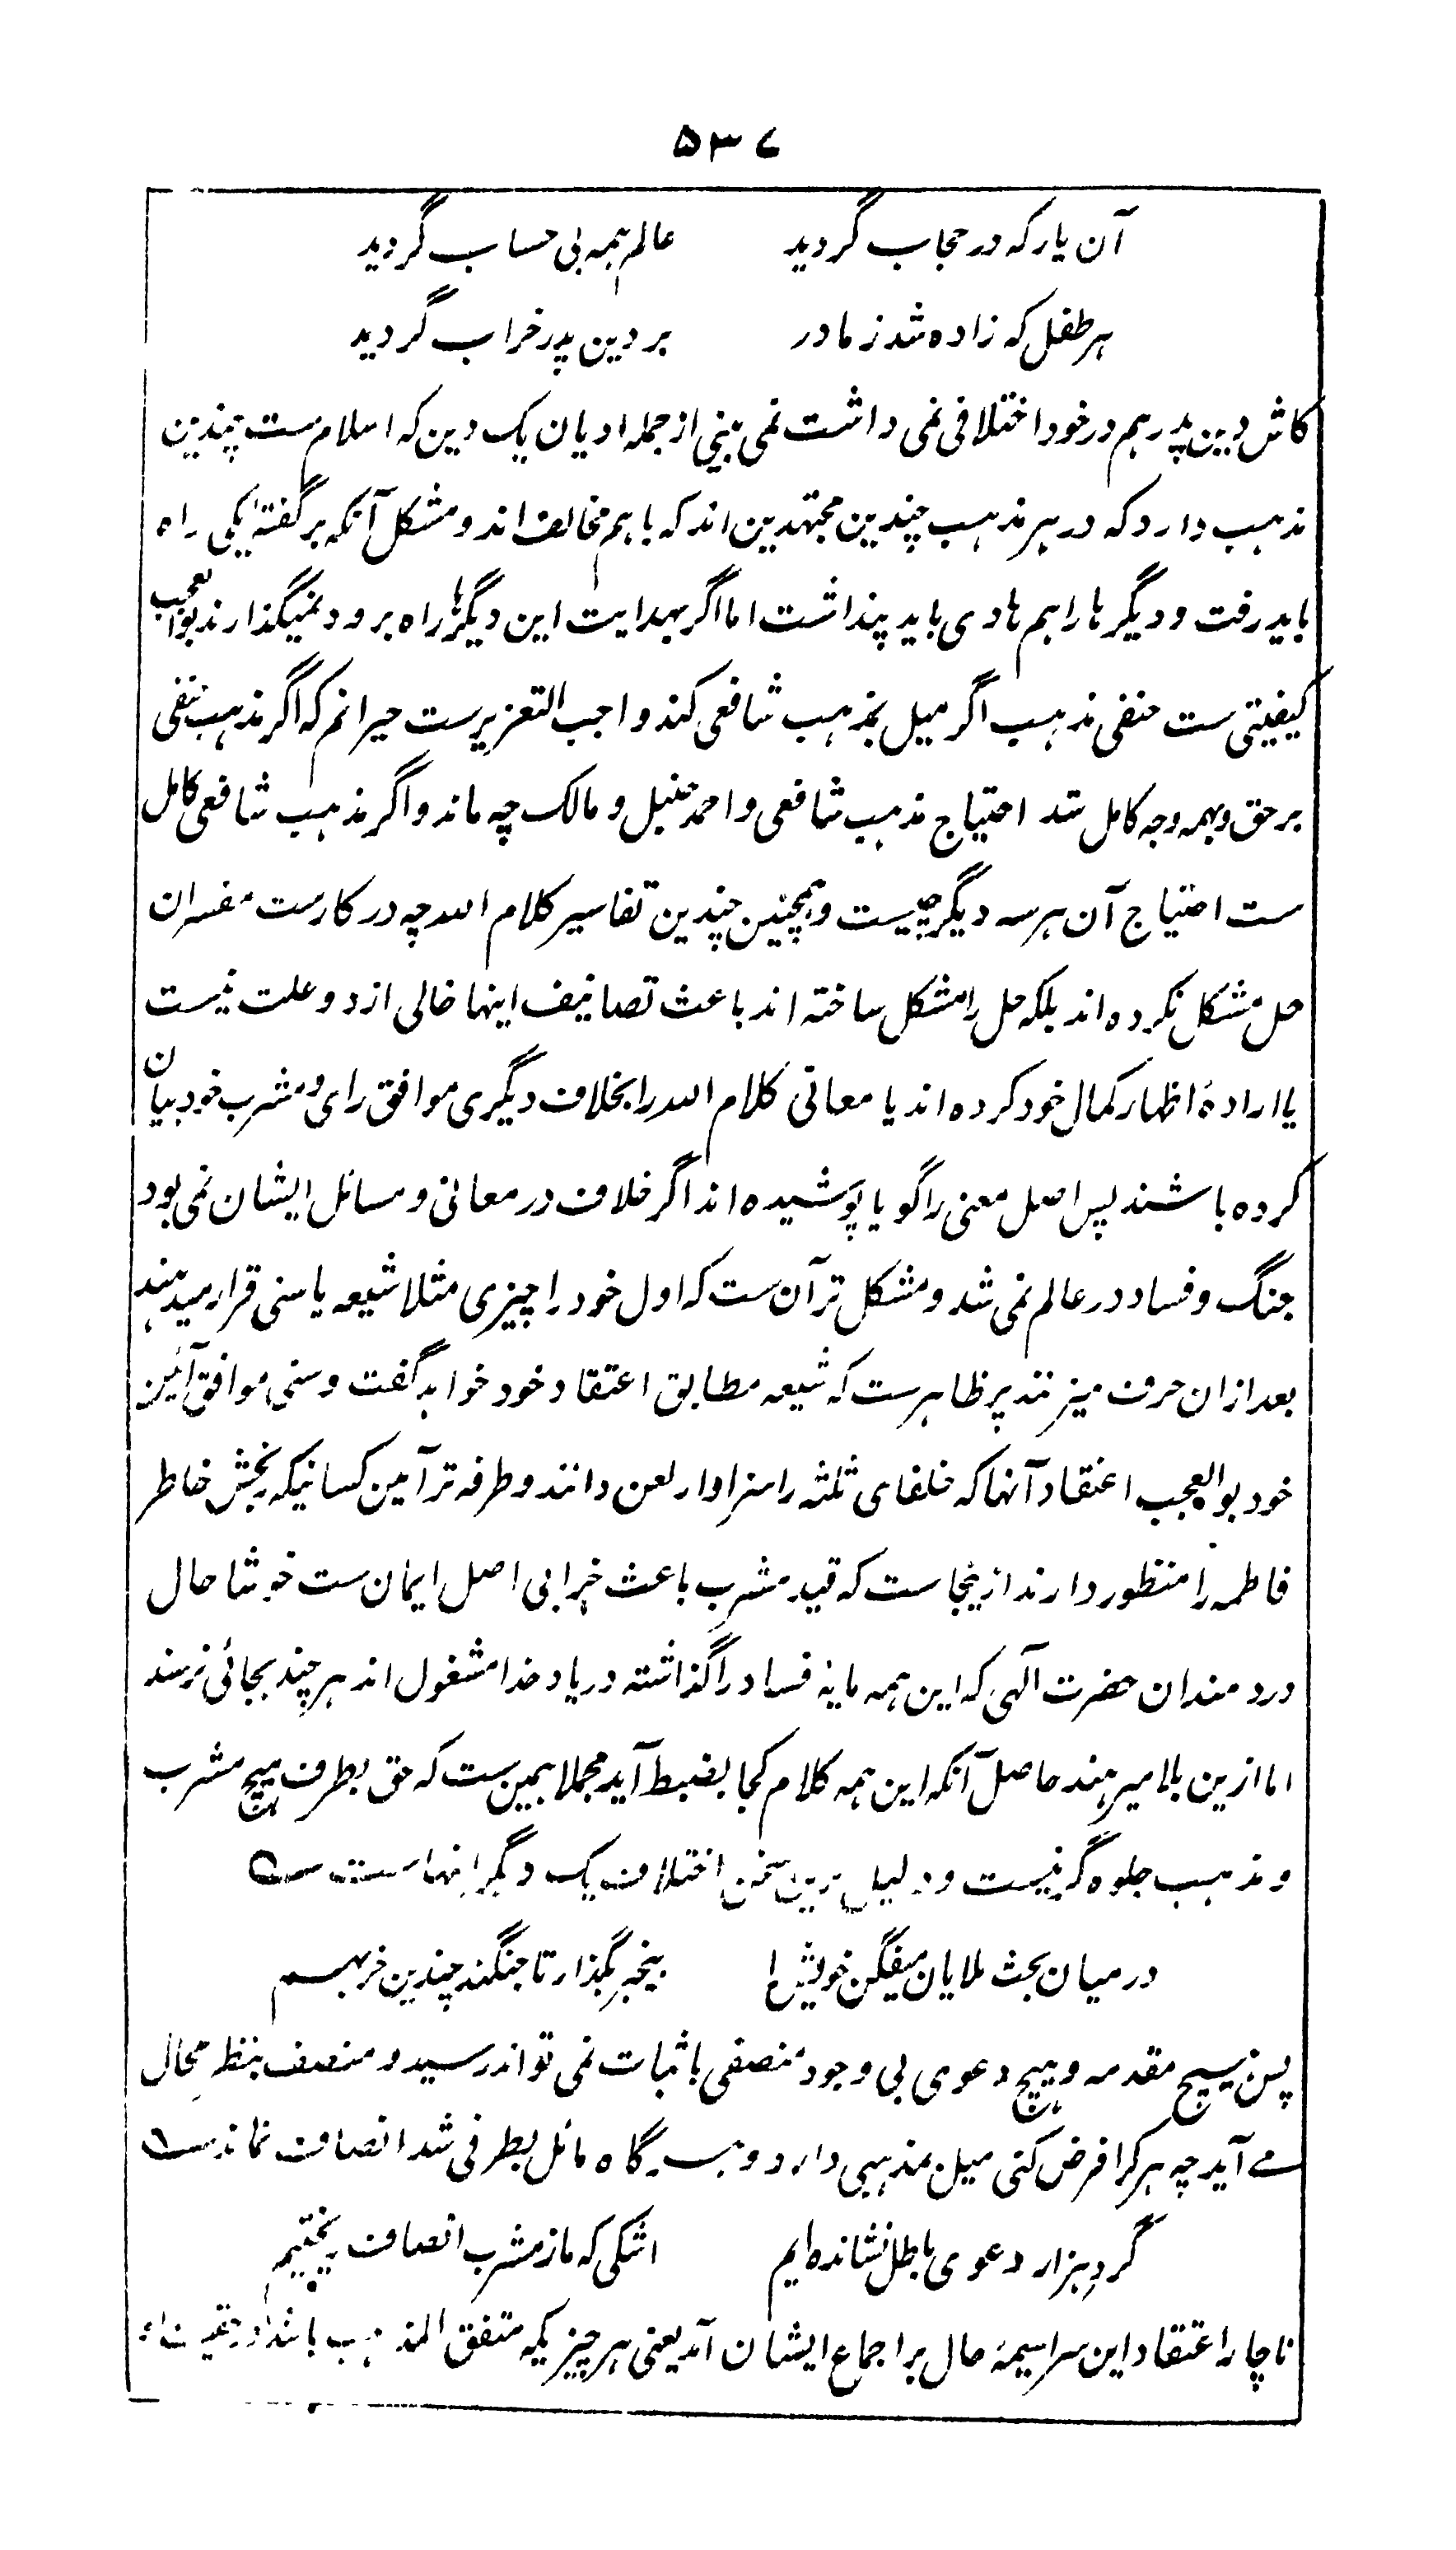 ۵۳۷
آن یار که در حجاب گردید عالم همه بی حساب گردید
هر طفل که زاده شد ز مادر بر دین پدر خراب گردید
کاش دین پدر هم در خود اختلافی نمی داشت نمی بینی از جمله ادیان یک دین که اسلام ست چندین
مذهب دارد که در هر مذهب چندین مجتهدین اند که با هم مخالف اند و مشکل آنکه بر گفتهٔ یکی راه
باید رفت و دیگر ها را هم هادی باید پنداشت اما اگر بهدایت این دیگرها راه برود نمیگذارند بوالعجب
کیفیتی ست حنفی مذهب اگر میل بمذهب شافعی کند واجب التعزیر ست حیرانم که اگر مذهب حنفی
بر حق و بهمه وجه کامل شد احتیاج مذهب شافعی و احمد حنبل و مالک چه ماند و اگر مذهب شافعی کامل
ست احتیاج آن هر سه دیگر چیست و همچنین چندین تفاسیر کلام الله چه در کارست مفسران
حل مشکل نکرده اند بلکه حل را مشکل ساخته اند باعث تصانیف اینها خالی از دو علت نیست
یا ارادهٔ اظهار کمال خود کرده اند یا معانی کلام الله را بخلاف دیگری موافق رای و مشرب خود بیان
کرده باشند پس اصل معنی را گویا پوشیده اند اگر خلاف در معانی و مسائل ایشان نمی بود
جنگ و فساد در عالم نمی شد و مشکل تر آن ست که اول خود را چیزی مثلا شیعه یا سنی قرار میدهند
بعد ازان حرف میزنند پر ظاهرست که شیعه مطابق اعتقاد خود خواهد گفت و سنی موافق آئین
خود بوالعجب اعتقاد آنها که خلفای ثلثه را سزاوار لعن دانند و طرفه تر آمین کسانیکه رنجش خاطر
فاطمه را منظور دارند ازینجاست که قید مشرب باعث خرابی اصل ایمان ست خوشا حال
دردمندان حضرت آلهی که این همه مایهٔ فساد را گذاشته در یاد خدا مشغول اند هر چند بجائی نرسند
اما ازین بلا میرهند حاصل آنکه این همه کلام کجا بضبط آید مجملا همین ست که حق بطرف هیچ مشرب
و مذهب جلوه گر نیست و دلیل برین سخن اختلاف یک دیگر اینهاست ے
در میان بحث ملایان میفگن خویش را بیخبر بگذار تا جنگند چندین خر بهم
پس هیچ مقدمه و هیچ دعوی بی وجود منصفی باثبات نمی تواند رسید و منصف بنظر محال
مے آید چه هر کرا فرض کنی میل مذهبی دارد و هرگاه مائل بطرفی شد انصاف نماند ے
گردِ هزار دعوی باطل نشانده ایم اشکی که ما ز مشرب انصاف ریختیم
ناچار اعتقاد این سراسیمهٔ حال بر اجماع ایشان آمد یعنی هر چیزیکه متفق المذهب باشد